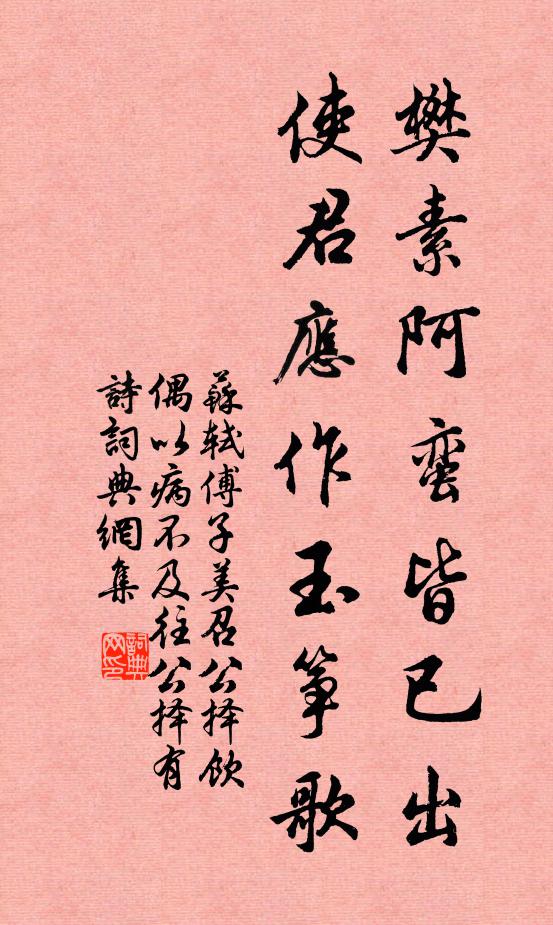 樊素阿蛮皆已出
使君應作玉筝歌
蘇軾傅子美召公择饮
偶以病不及往公择有
詩詞典網集
詞典网印